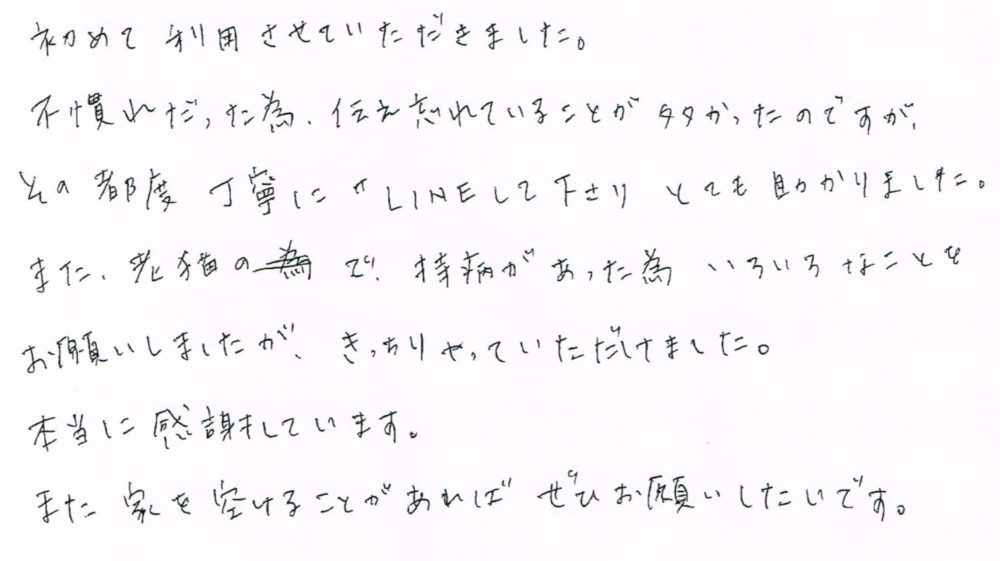 初めて利用させていただきました。
不慣れだった為、伝え忘れていることが多かったのですが、
その都度 丁寧に LINEして下さり とても助かりました。
また、老猫ので、持病があった為 いろいろなことを
お願いしましたが、きっちりやっていただけました。
本当に感謝しています。
また 家を空けることがあれば ぜひお願いしたいです。